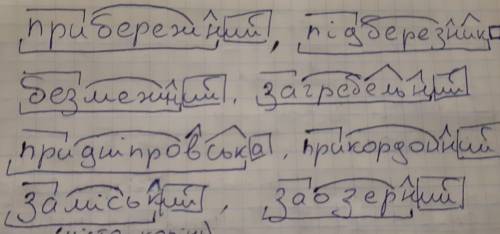 прибережний, підберезник
безмежний. загребельний
придніпровська, прикордонний
заміський, заозерний